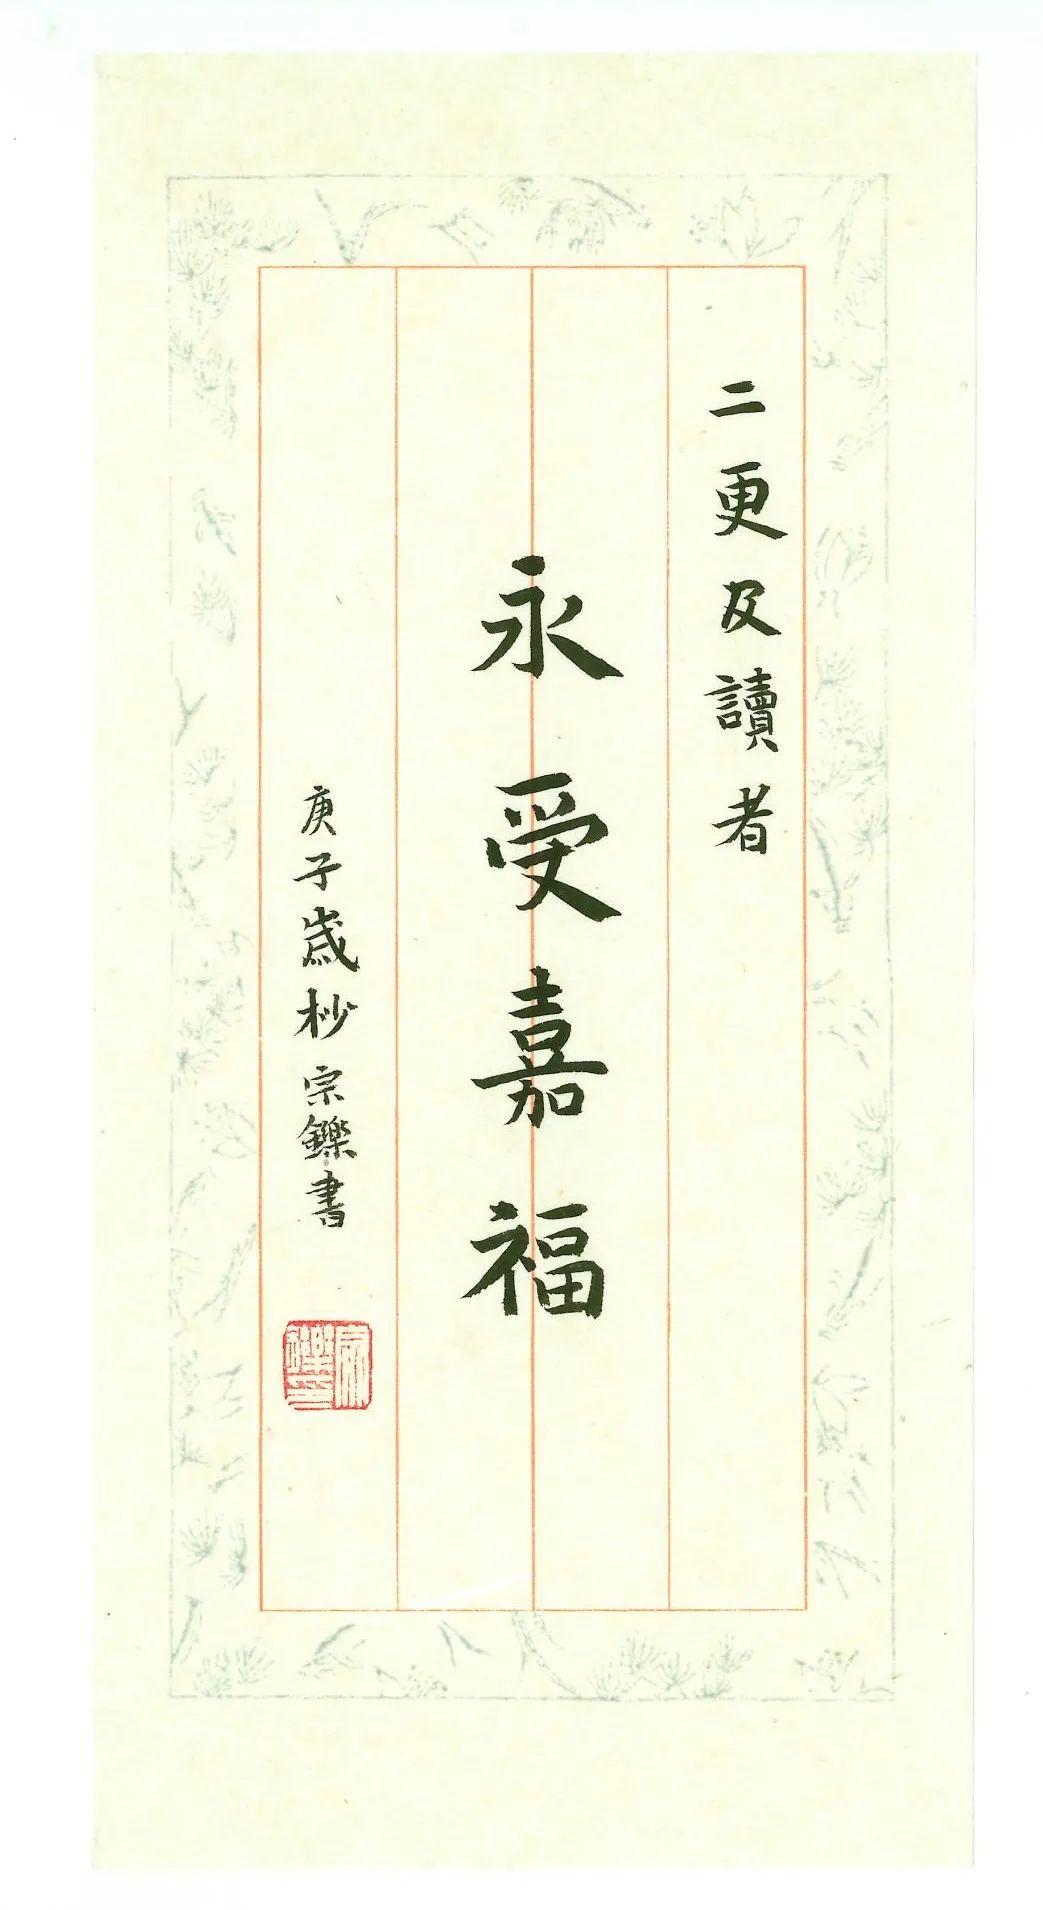 二更及讀者
永受嘉福
庚子歲杪宗鑠書
宗鑠印